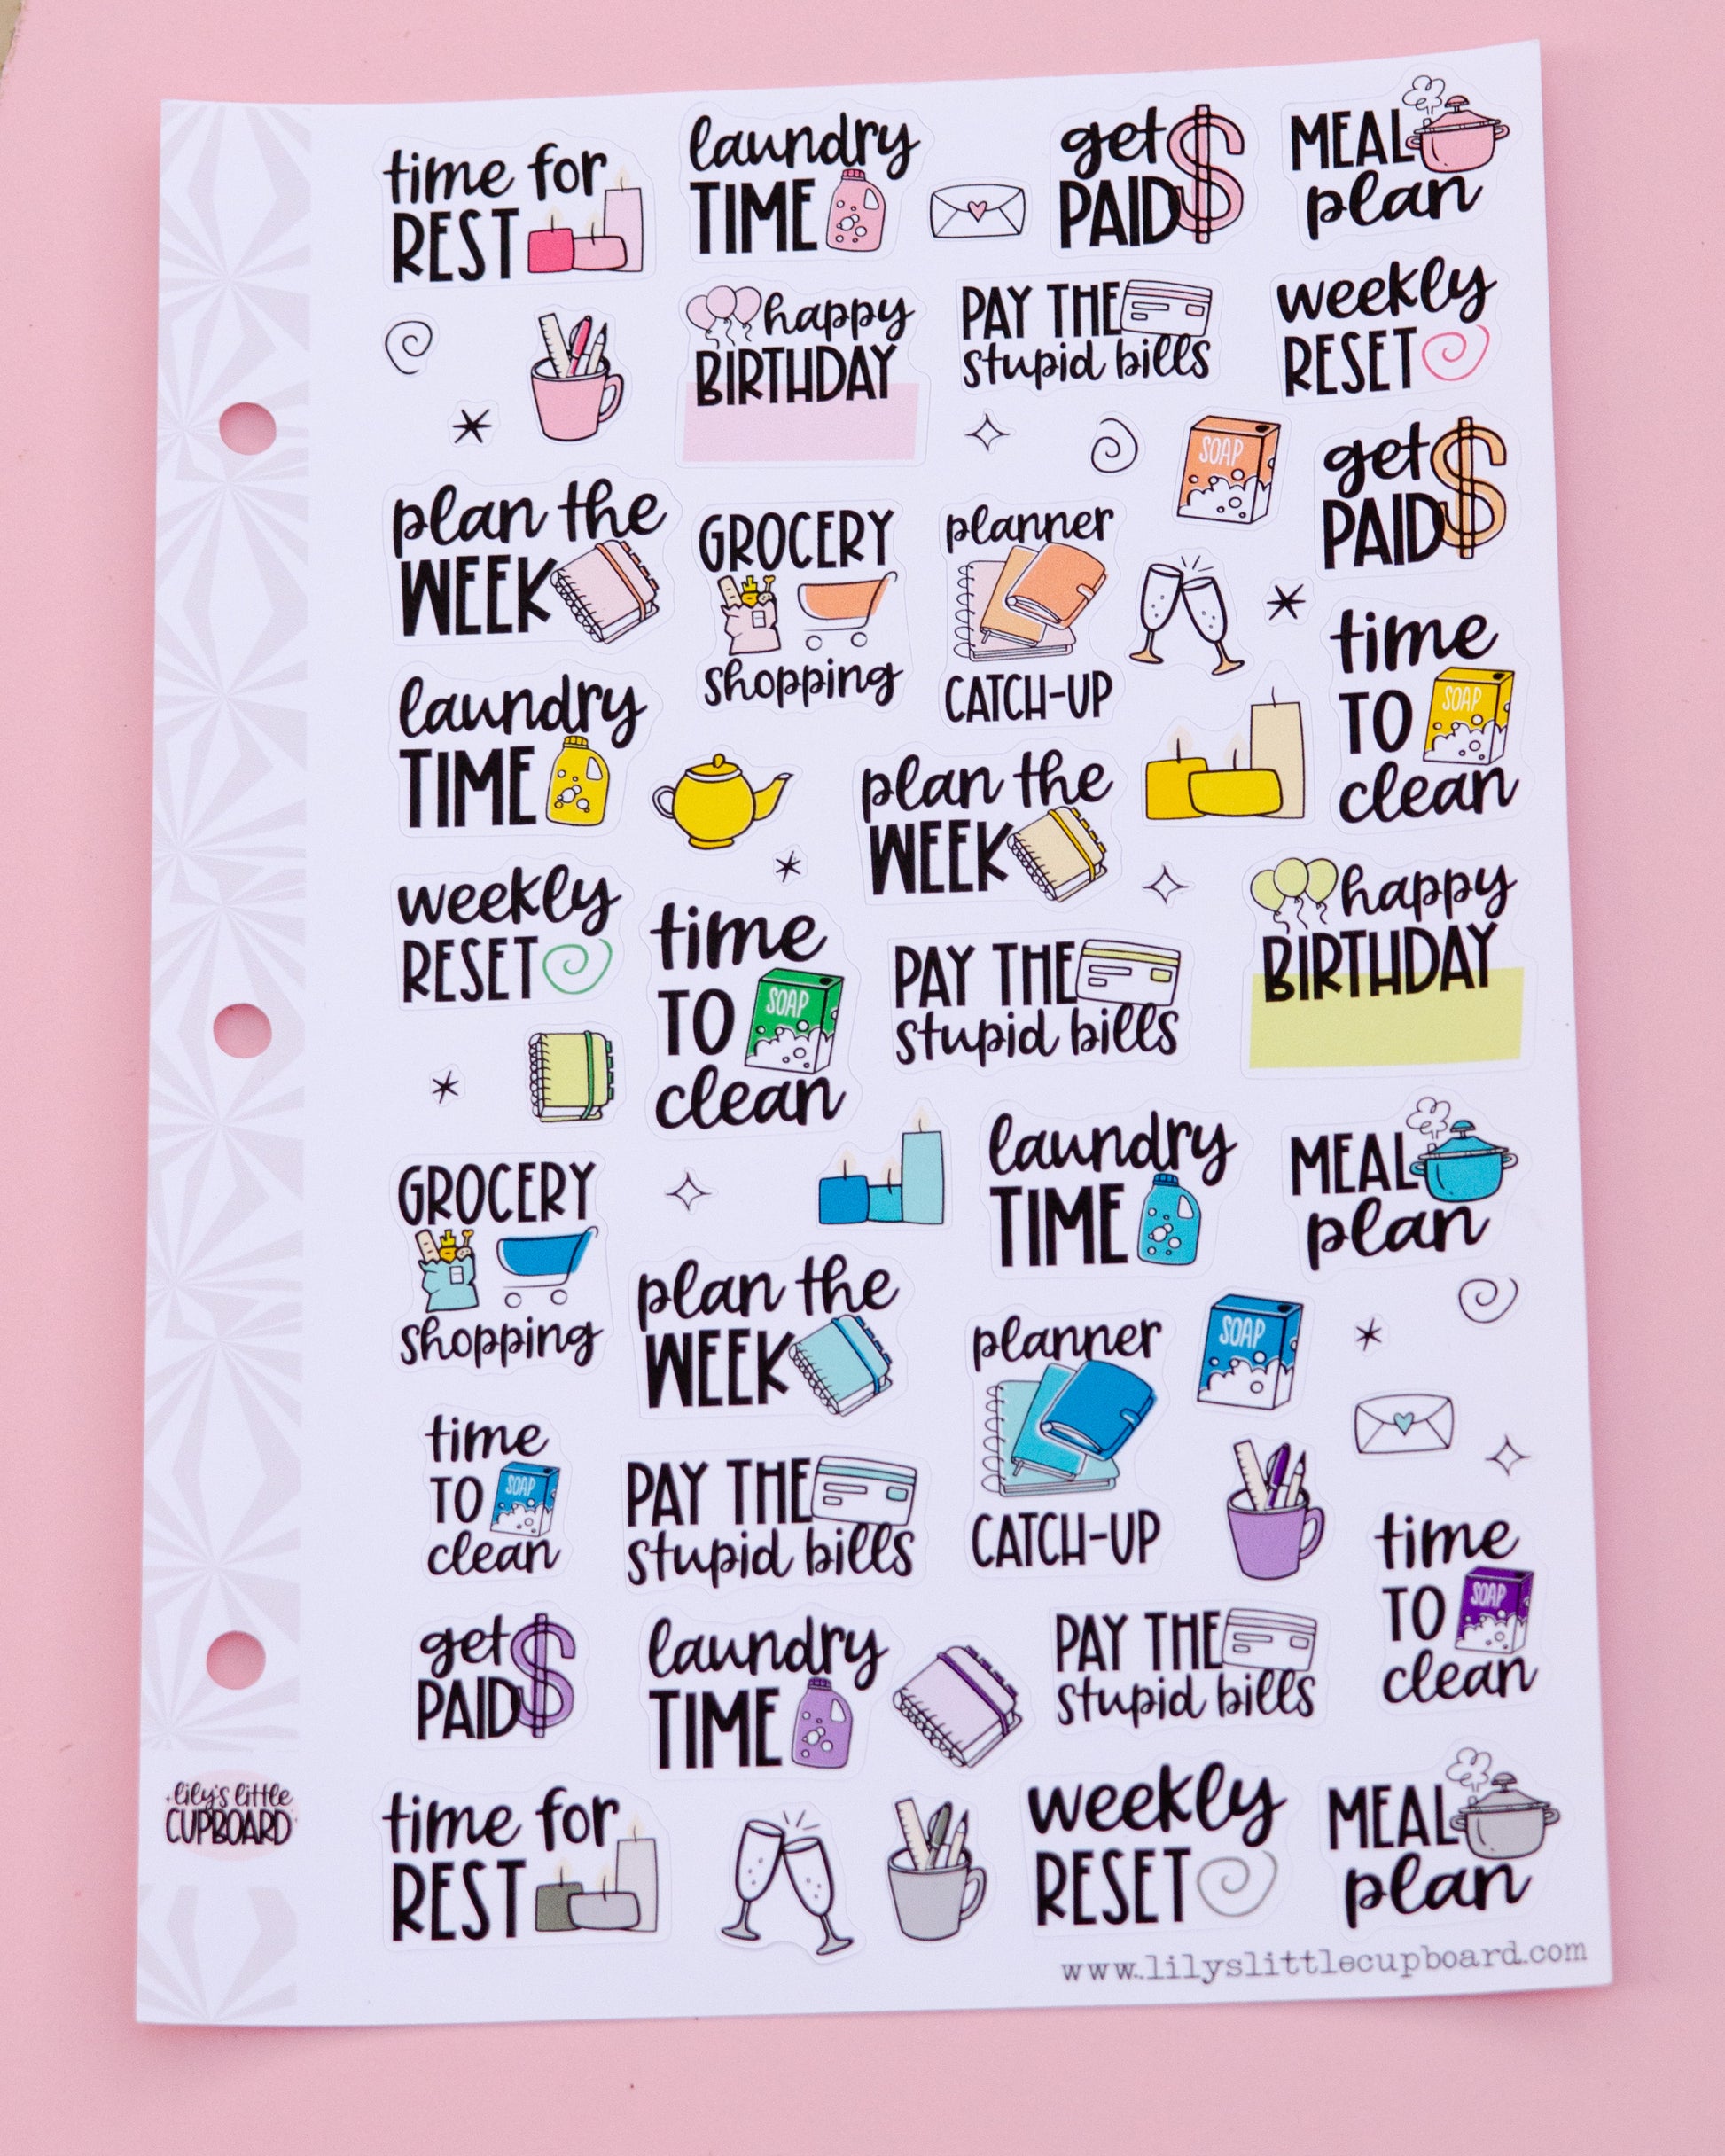 time for
REST
laundry
TIME
get
PAID$
MEAL
plan
happy
BIRTHDAY
PAY THE
stupid bills
weekly
RESET
SOAP
get
PAID$
plan the
WEEK
GROCERY
shopping
planner
CATCH-UP
time
TO
SOAP
clean
laundry
TIME
plan the
WEEK
weekly
RESET
time
TO
SOAP
clean
PAY THE
stupid bills
happy
BIRTHDAY
GROCERY
shopping
laundry
TIME
MEAL
plan
plan the
WEEK
planner
CATCH-UP
SOAP
time
TO
SOAP
clean
PAY THE
stupid bills
time
TO
SOAP
clean
get
PAID$
laundry
TIME
PAY THE
stupid bills
lily's little
CUPBOARD
time for
REST
weekly
RESET
MEAL
plan
www.lilyslittlecupboard.com